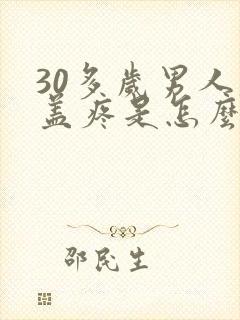 30多歲男人
盖疼是怎麼
邵民生